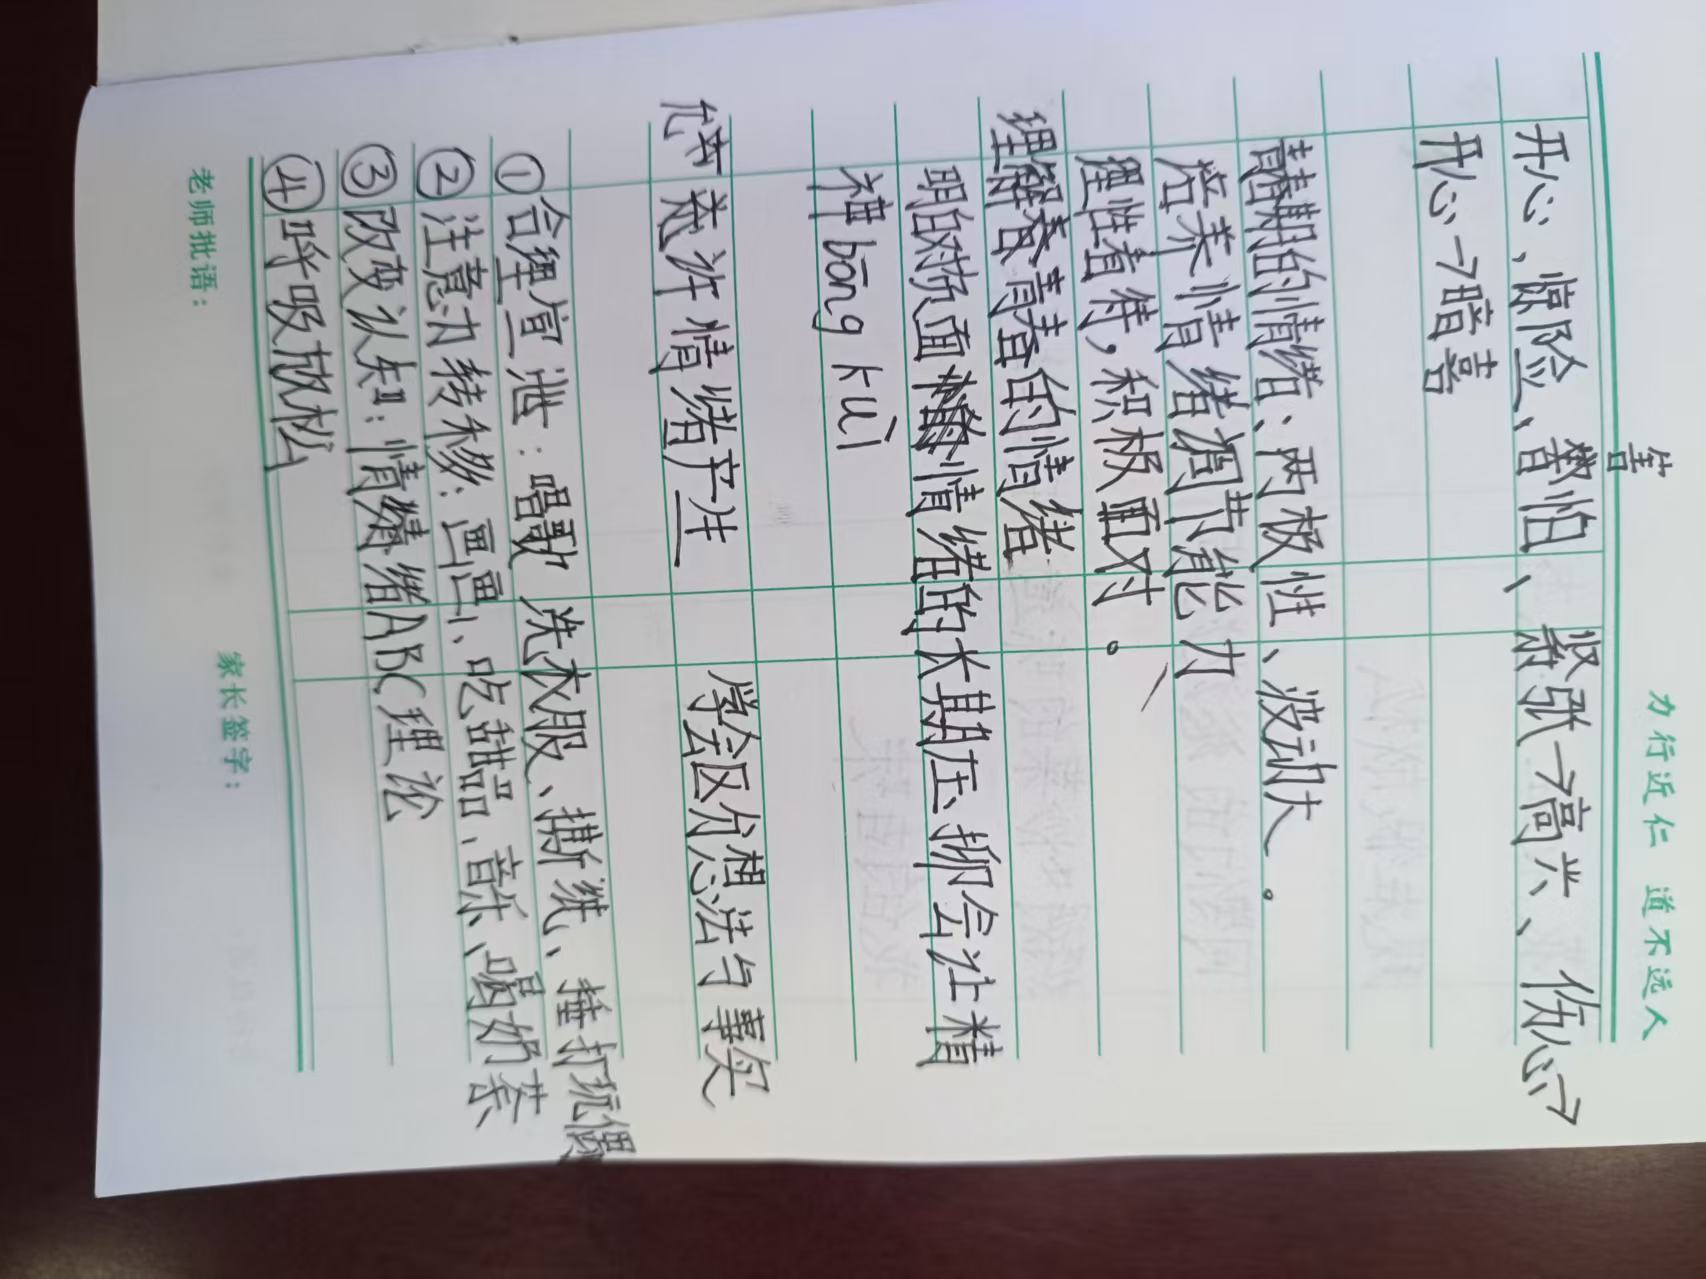 力行近仁 道不远人
害
开心、惊险、害怕、紧张→高兴、伤心→
开心→暗喜
青春期的情绪、两极性、波动大。
培养情绪调节能力、
理性看待，积极面对。
理解春青春的情绪
明白对负面情绪的长期压抑会让精
神bēng kuì
允许情绪产生 学会区分想法与事实
①合理宣泄：唱歌 洗衣服、撕纸、捶打玩偶
②注意力转移：画画、吃甜品、音乐、喝奶茶
③改变认知：情绪ABC理论
④呼吸放松
老师批语： 家长签字：